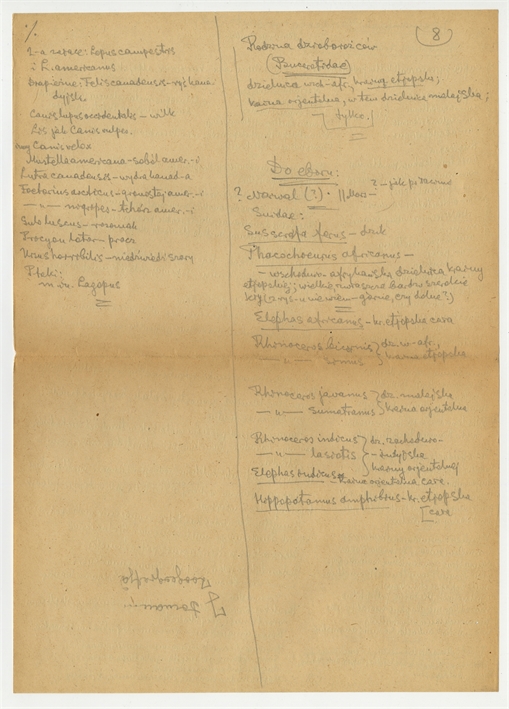 2-a zające: Lepus campestris
i L. americanus
drapieżne: Felis canadensis - ryś kana-
dyjski.
Canis lupus occidentalis - wilk
Lis jak Canis vulpes.
Canis velox
Mustella americana - soból amer. - i
Lutra canadensis - wydra kanad - a
Foetorius arcticus - gronostaj amer. - i
— " — nigripes - tchórz amer. - i
Gulo luscus - rosomak
Procyon lotor - pracz
Ursus horribilis - niedźwiedź szary
Ptaki:
m. in. Lagopus
8
Rodzina dzioborożców
(Bucerotidae)
dzielnica wsch-afr. krainy etjopska;
kraina orjentalna, w tem dzielnica malajska;
tylko.
Do eboru:
? Narwal (?). || Mors -
? - jak piżmowiec
Suidae:
Sus scrofa ferus - dzik
Phacochoerus africanus -
- wschodnio-afrykańska dzielnica krainy
etjopskiej; wielkie, zwłaszcza bardzo szerokie
kły (z rys-u nie wiem - górne, czy dolne?)
Elephas africanus - kr. etjopska cała
Rhinoceros bicornis } dz. wo-afr.,
— " — simus } kraina etjopska
Rhinoceros javanus } dz. malajska
— " — sumatranus } kraina orjentalna
Rhinoceros indicus } dz. zachodnio-
— " — lasiotis } - indyjska
krainy orjentalnej
Elephas indicus - kraina orjentalna cała.
Hippopotamus amphibius - kr. etjopska
[cała
J. Domaniewski
Zoogeografja